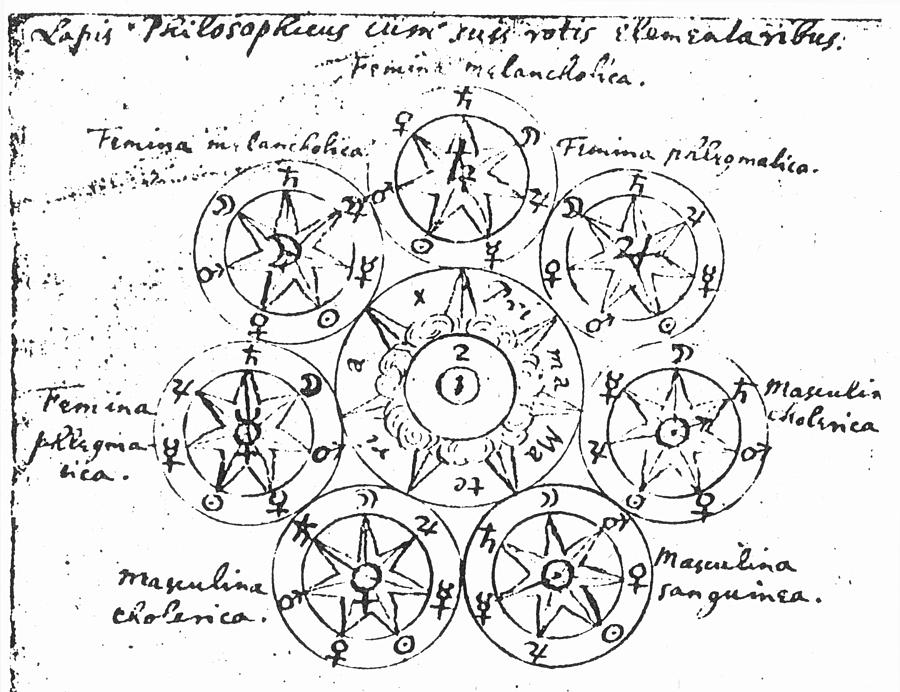 Lapis Philosophicus cum suis rotis Elementaribus.
Femina melancholica.
Femina melancholica
Femina phlegmatica.
Femina
phlegma-
tica.
Masculin
cholerica
Masculina
cholerica.
Masculina
sanguinea.
♄ ☽ ♃ ☿ ☉ ♂ ♀
♄ ♃ ☿ ☉ ♀ ♂ ☽
♄ ♃ ☿ ☉ ♂ ♀ ☽
♄ ☽ ♂ ♀ ☉ ☿ ♃
☽ ♄ ♂ ♀ ☉ ♃ ☿
☽ ♃ ☿ ☉ ♀ ♂ ♄
☽ ♂ ♀ ☉ ♃ ☿ ♄
x
ma
Ma
te
2
1